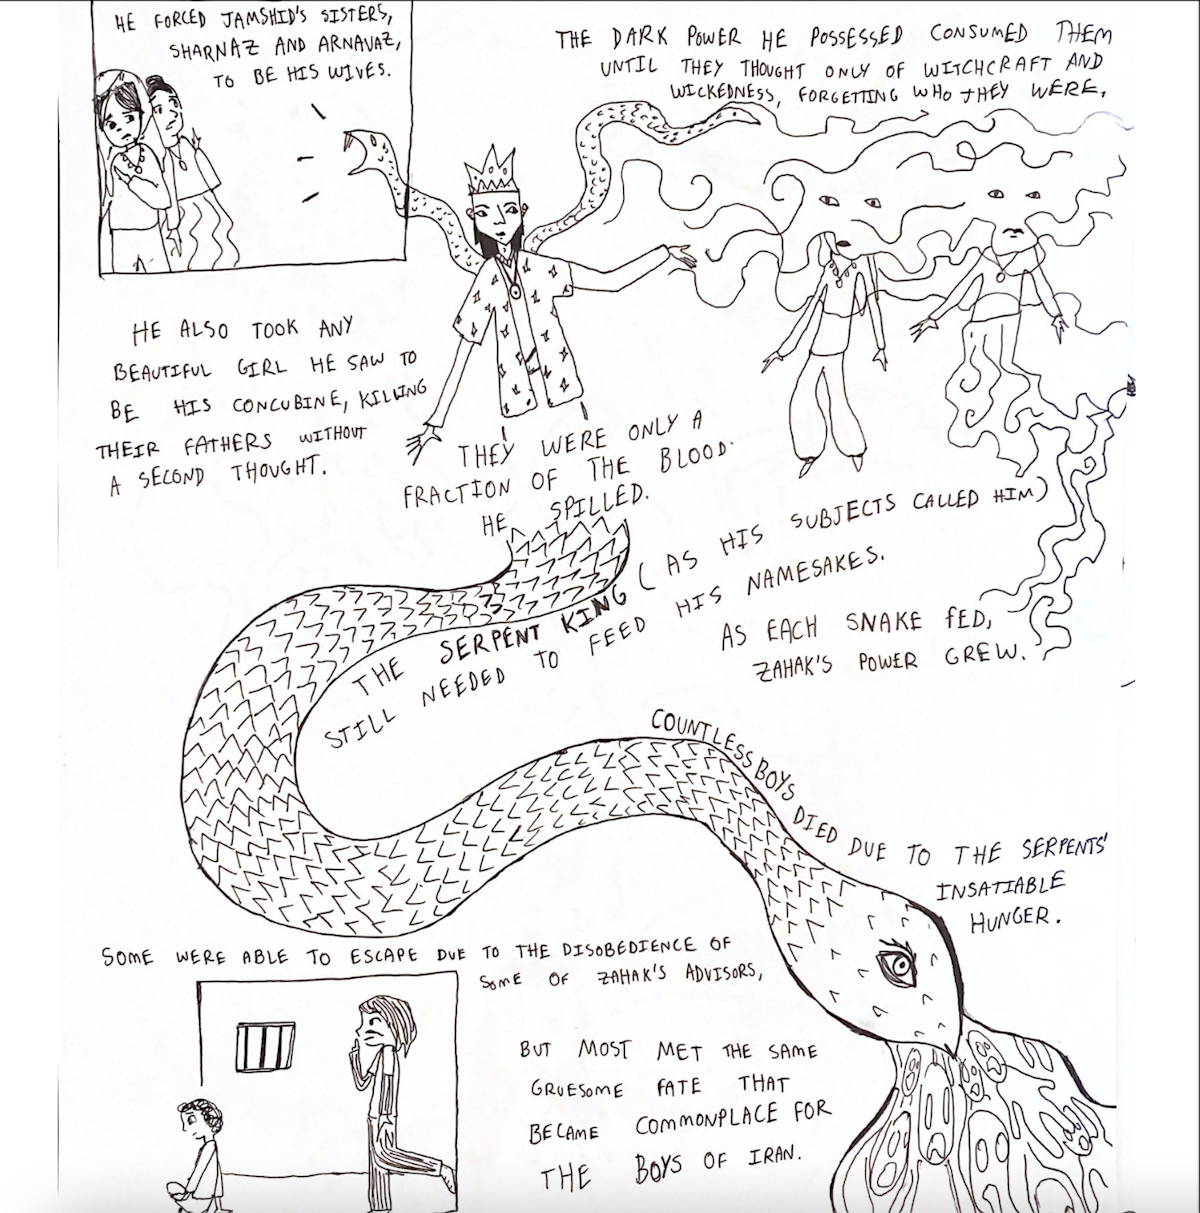 HE FORCED JAMSHID'S SISTERS,
SHARNAZ AND ARNAVAZ,
TO BE HIS WIVES.
THE DARK POWER HE POSSESSED CONSUMED THEM
UNTIL THEY THOUGHT ONLY OF WITCHCRAFT AND
WICKEDNESS, FORGETTING WHO THEY WERE.
HE ALSO TOOK ANY
BEAUTIFUL GIRL HE SAW TO
BE HIS CONCUBINE, KILLING
THEIR FATHERS WITHOUT
A SECOND THOUGHT.
THEY WERE ONLY A
FRACTION OF THE BLOOD
HE SPILLED.
THE SERPENT KING (AS HIS SUBJECTS CALLED HIM)
STILL NEEDED TO FEED HIS NAMESAKES.
AS EACH SNAKE FED,
ZAHAK'S POWER GREW.
COUNTLESS BOYS DIED DUE TO THE SERPENTS'
INSATIABLE
HUNGER.
SOME WERE ABLE TO ESCAPE DUE TO THE DISOBEDIENCE OF
SOME OF ZAHAK'S ADVISORS,
BUT MOST MET THE SAME
GRUESOME FATE THAT
BECAME COMMONPLACE FOR
THE BOYS OF IRAN.